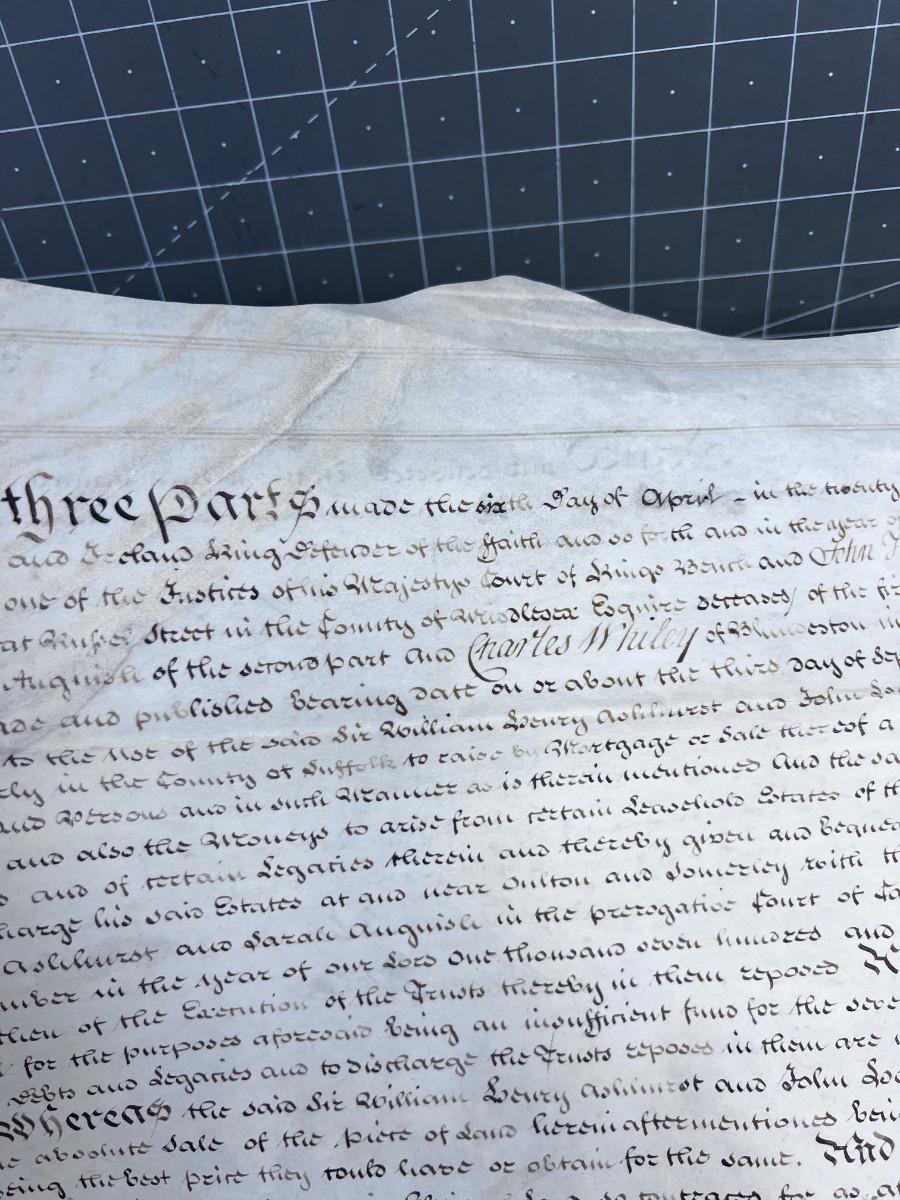 three Parts made the sixth Day of April - in the twenty
and Ireland King Defender of the Faith and so forth and in the year of
one of the Justices of his Majestys Court of Kings Bench and John
Russel Street in the County of Middlesex Esquire deceased, of the
Anguish of the second part and Charles Whiley of Blundeston in
and published bearing date on or about the third day of
to the use of the said Sir William Henry Ashhurst and John
in the County of Suffolk to raise by Mortgage or Sale thereof a
and Persons and in such Manner as is therein mentioned And the
and also the Moneys to arise from certain Leasehold Estates of
and of certain Legacies therein and thereby given and
his said Estates at and near Oulton and Somerley with
Ashhurst and Sarah Anguish in the prerogative Court of
in the year of our Lord One thousand seven hundred and
of the Execution of the Trusts thereby in them reposed
for the purposes aforesaid being an insufficient fund for the
Debts and Legacies and to discharge the Trusts reposed in them are
Whereas the said Sir William Henry Ashhurst and John
absolute Sale of the piece of Land hereinaftermentioned
being the best price they could have or obtain for the same. And